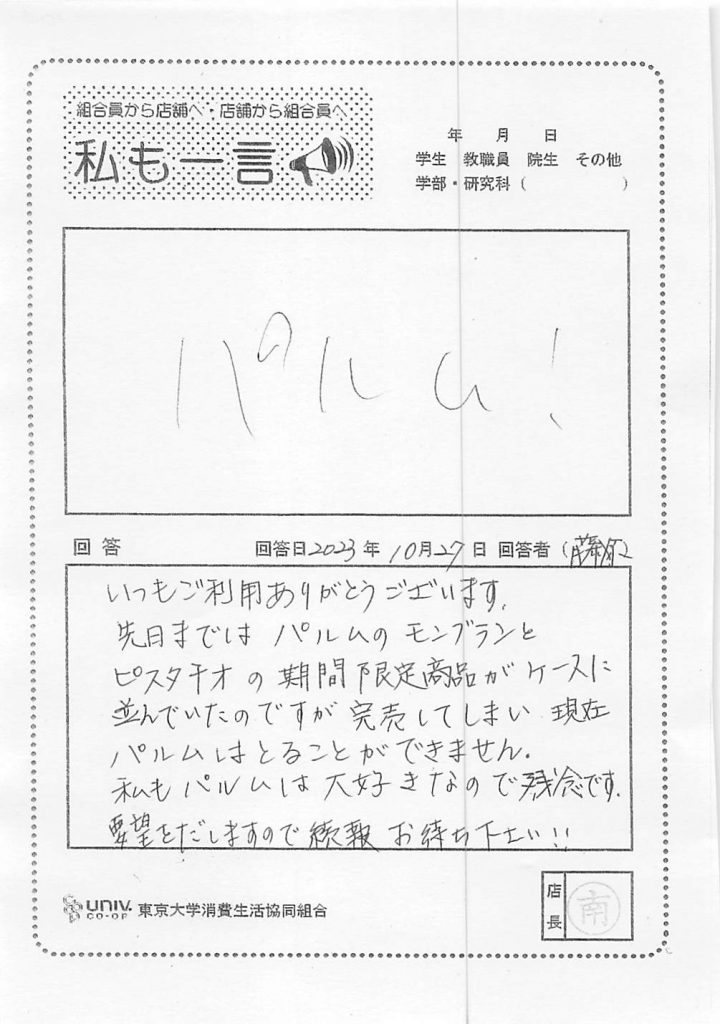 組合員から店舗へ・店舗から組合員へ
私も一言
年 月 日
学生 教職員 院生 その他
学部・研究科( )
パルム!
回答 回答日2023年10月27日 回答者(藤原)
いつもご利用ありがとうございます。
先日までは パルムの モンブランと
ピスタチオの 期間限定商品が ケースに
並んでいたのですが 完売してしまい 現在
パルムはとることができません。
私も パルムは 大好きなので 残念です。
要望をだしますので 続報 お待ち下さい!!
UNIV. CO-OP 東京大学消費生活協同組合
店長 南